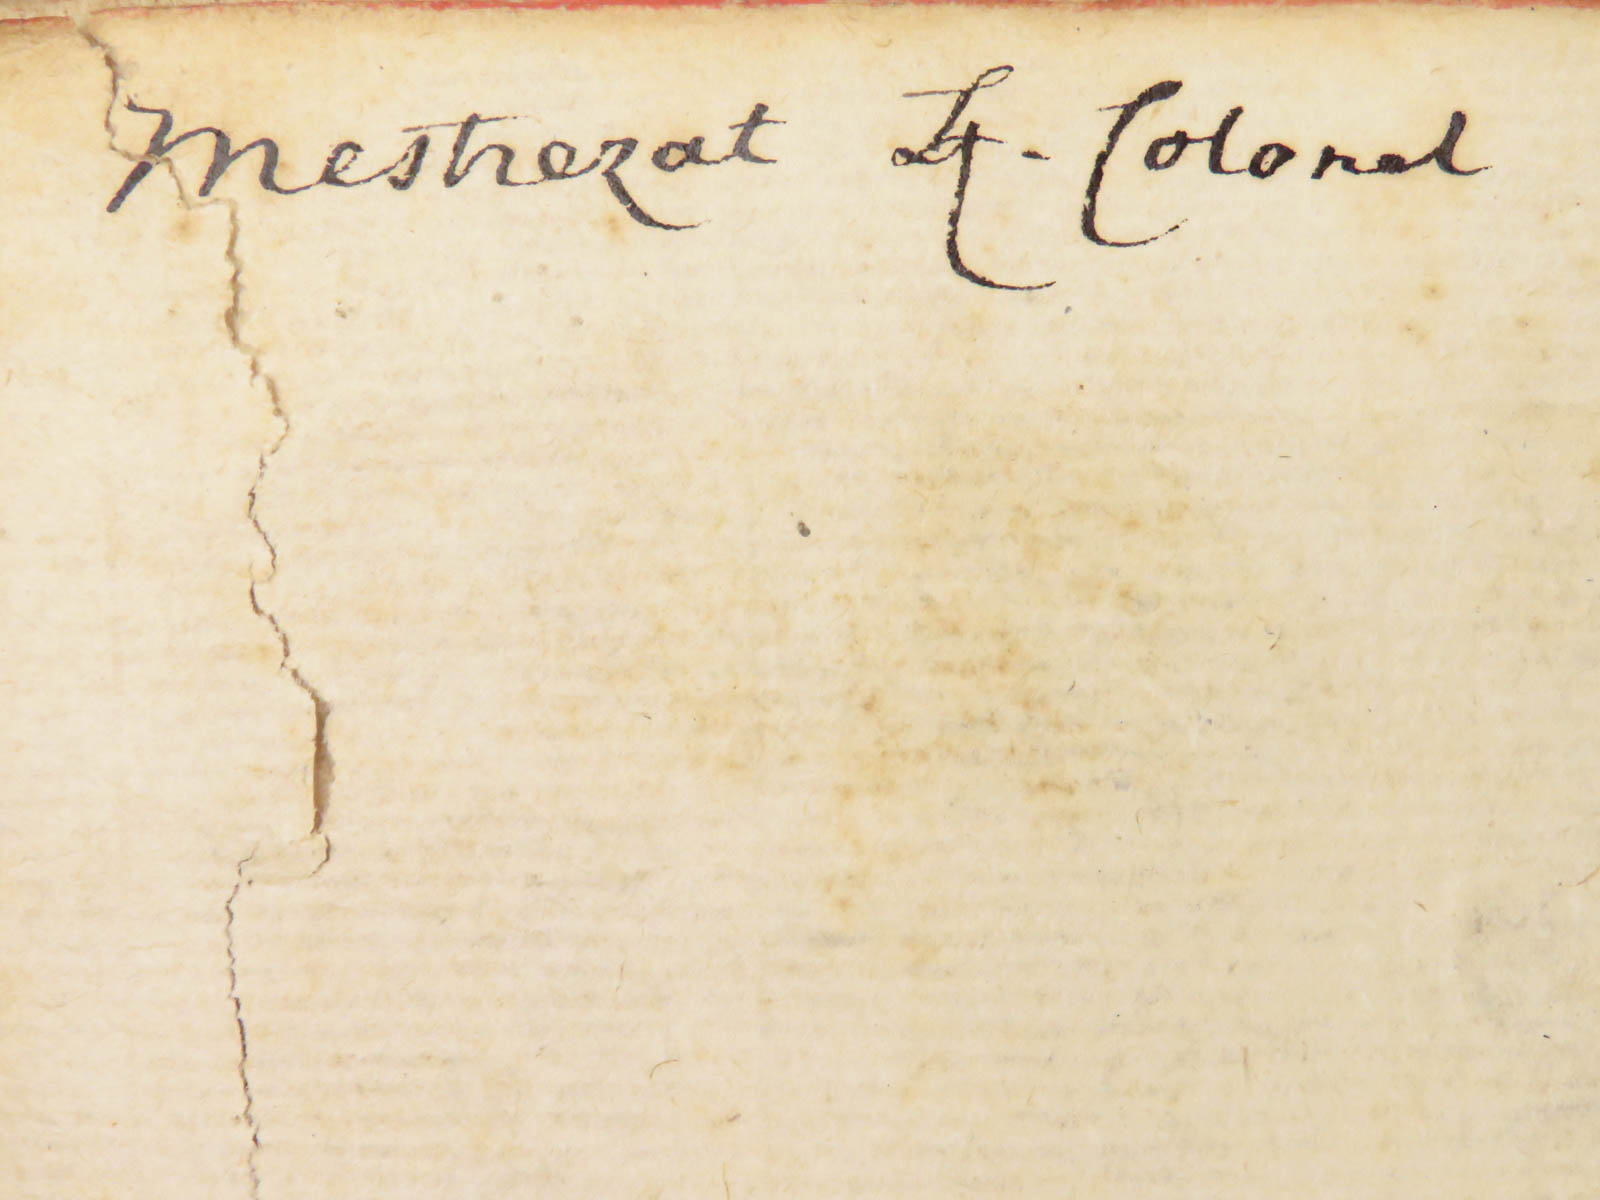 Mestrezat Lt-Colonel